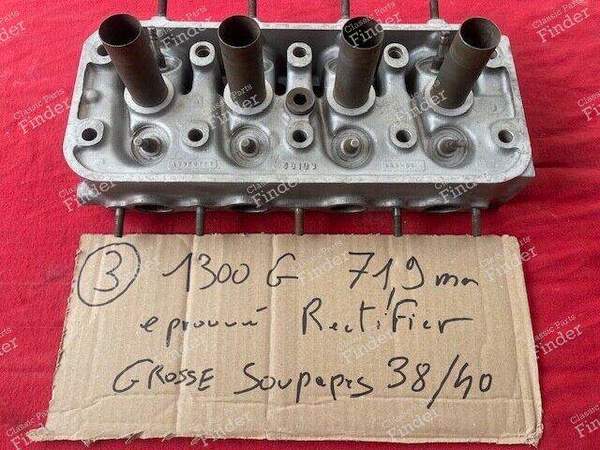 ③ 1300 G 71,9 mm
eprouvé Rectifier
GROSSE Soupapes 38/40
Classic Parts
Finder